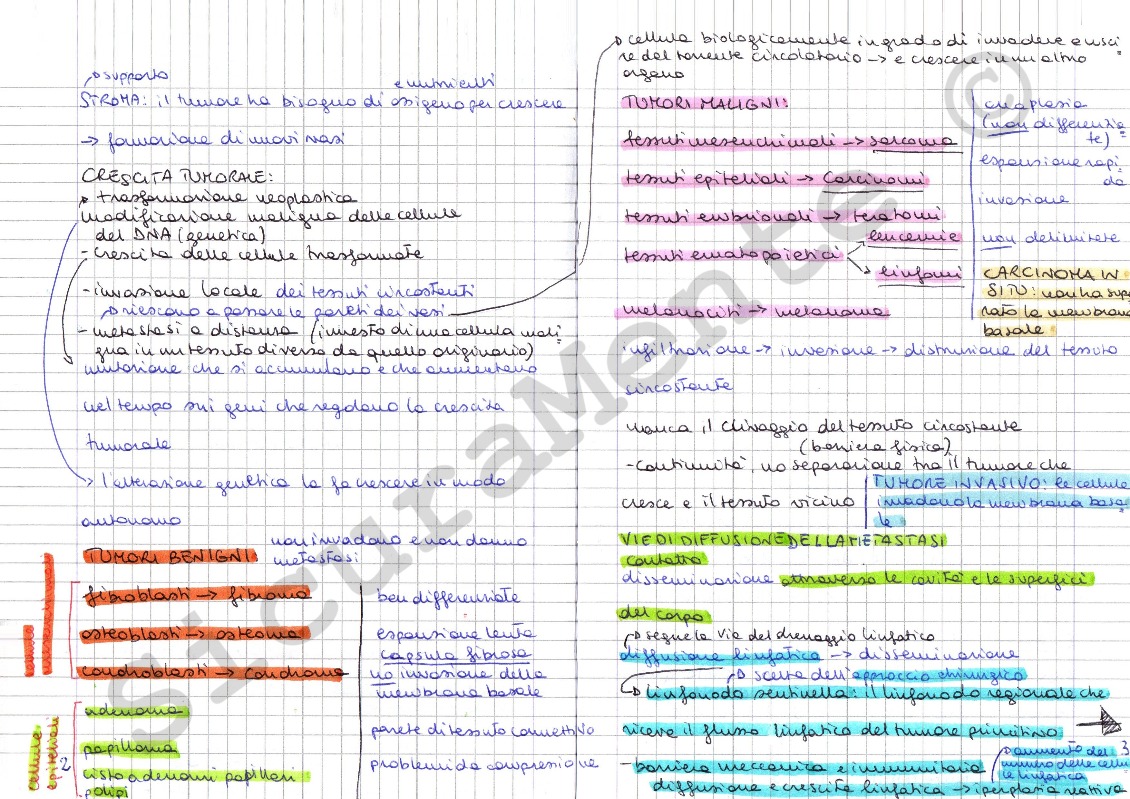 supporto
e nutrienti
STROMA: il tumore ha bisogno di ossigeno per crescere
→ formazione di nuovi vasi
CRESCITA TUMORALE:
trasformazione neoplastica
modificazione maligna delle cellule
del DNA (genetica)
- crescita delle cellule trasformate
- invasione locale dei tessuti circostanti
riescono a passare le pareti dei vasi
- metastasi a distanza (innesto di una cellula mali
gna in un tessuto diverso da quello originario)
mutazione che si accumulano e che aumentano
nel tempo sui geni che regolano la crescita
tumorale
→ l'alterazione genetica la fa crescere in modo
autonomo
TUMORI BENIGNI
non invadono e non danno
metastasi
fibroblasti → fibroma
osteoblasti → osteoma
condroblasti → condroma
mesenchimali
ben differenziate
espansione lenta
capsula fibrosa
no invasione della
membrana basale
parete di tessuto connettivo
problemi da compressione
cellule
epiteliali
adenoma
papilloma
cistoadenomi papillari
polipi
2
cellula biologicamente in grado di invadere e usci
re del torrente circolatorio → e crescere in un altro
organo
TUMORI MALIGNI:
tessuti mesenchimali → sarcoma
tessuti epiteliali → carcinomi
tessuti embrionali → teratomi
tessuti ematopoietici
leucemie
linfomi
melanociti → melanoma
anaplasia
(non differenzia
te)
espansione rapi
da
invasione
non delimitate
CARCINOMA IN
SITU: non ha supe
rato la membrana
basale
infiltrazione → invasione → distruzione del tessuto
circostante
manca il clivaggio del tessuto circostante
(barriera fisica)
- continuità, no separazione tra il tumore che
cresce e il tessuto vicino
TUMORE INVASIVO: le cellule
invadono la membrana basa
le
VIE DI DIFFUSIONE DELLA METASTASI
contatto
disseminazione attraverso le cavità e le superfici
del corpo
segue la via del drenaggio linfatico
diffusione linfatica → disseminazione
scelta dell'approccio chirurgico
linfonodo sentinella: il linfonodo regionale che
riceve il flusso linfatico del tumore primitivo
- barriera meccanica e immunitaria
aumento del
numero delle cellu
le linfatica
diffusione e crescita linfatica → iperplasia reattiva
3
SicuraMente ©